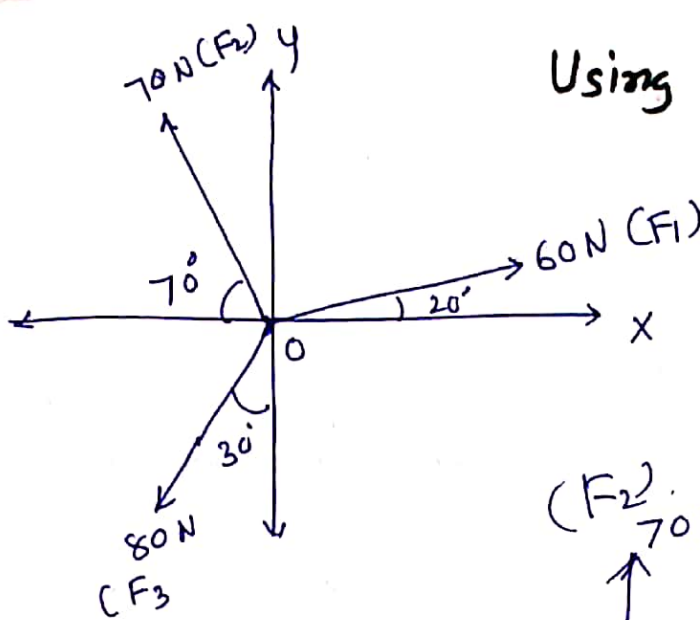 70N (F2) y
Using
60N (F1)
70°
20°
X
O
30°
80N
(F3
(F2)
70